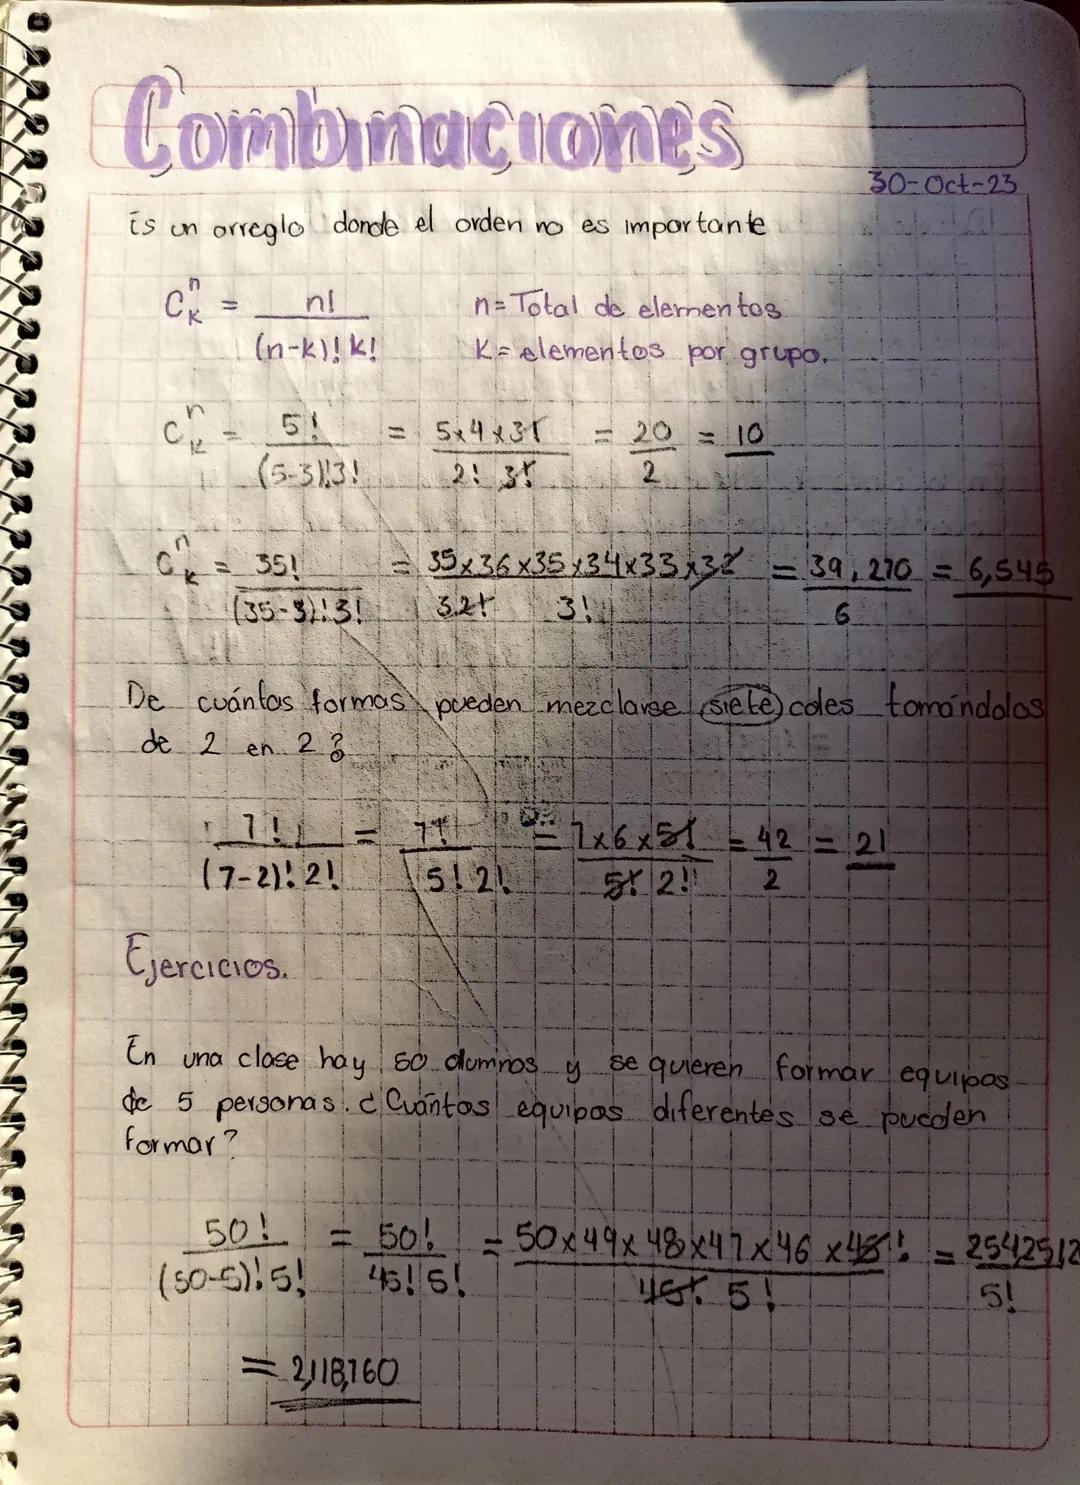 Combinaciones
30-Oct-23
Es un arreglo donde el orden no es importante
C^n_k = n! / (n-k)! k!    n = Total de elementos
K = elementos por grupo.
C^n_k = 5! / (5-3)!3! = 5x4x3! / 2! 3! = 20 / 2 = 10
C^n_k = 35! / (35-3)!3! = 35x36x35x34x33x32 / 32! 3! = 39,270 / 6 = 6,545
De cuántas formas pueden mezclarse (siete) coles tomándolos
de 2 en 2?
7! / (7-2)! 2! = 7! / 5! 2! = 7x6x5! / 5! 2! = 42 / 2 = 21
Ejercicios.
En una clase hay 50 alumnos y se quieren formar equipos
de 5 personas. ¿Cuántos equipos diferentes se pueden
formar?
50! / (50-5)! 5! = 50! / 45! 5! = 50x49x48x47x46x45! / 45! 5! = 2542512 / 5!
= 2,118,760